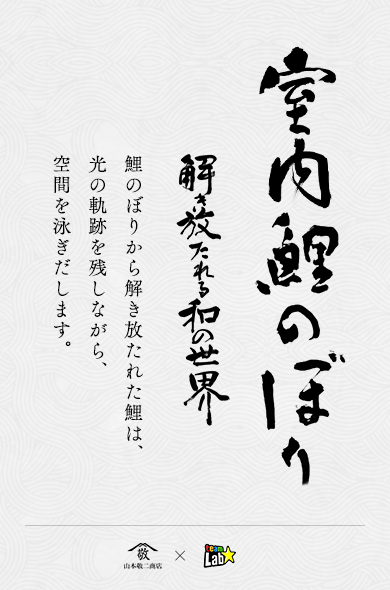 室内鯉のぼり
解き放たれる和の世界
鯉のぼりから解き放たれた鯉は、
光の軌跡を残しながら、
空間を泳ぎだします。
敬
山本敬二商店
×
teamLab